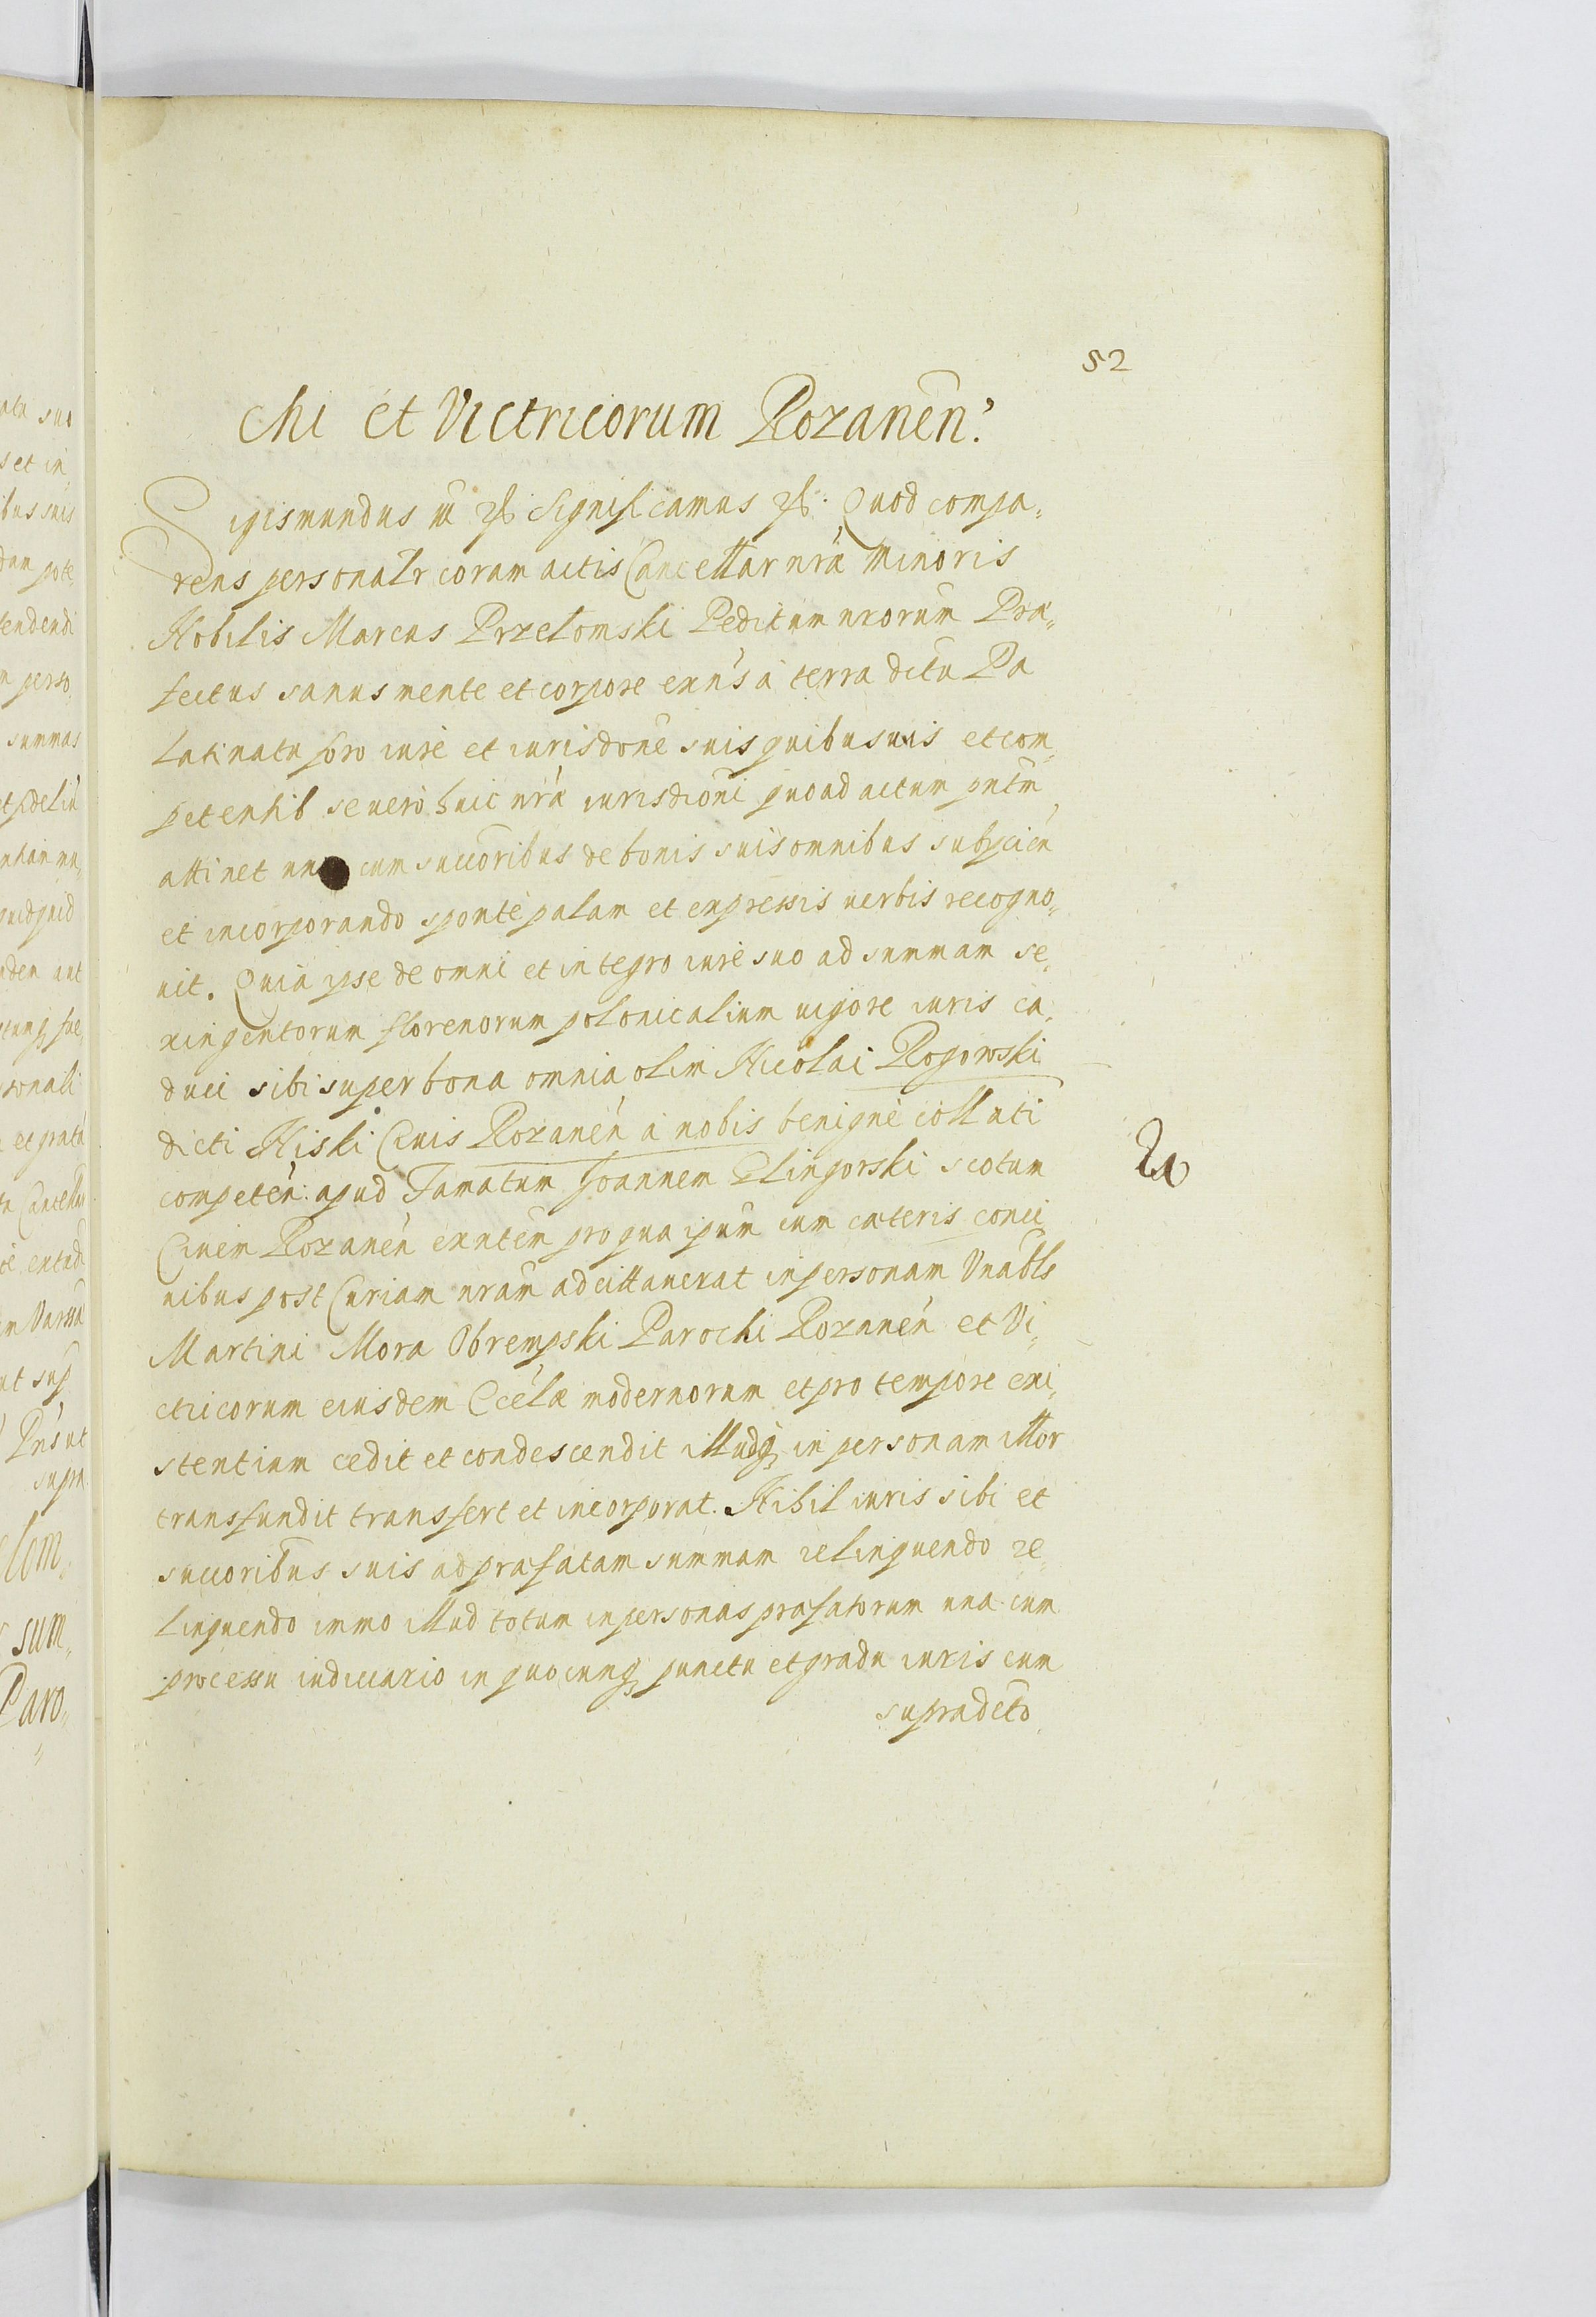 52
chi et Victricorum Rozanen̄.
Sigismundus III etc. Significamus etc. Quod compa„
rens personalr coram actis Cancellar nrā minoris
Nobilis Marcus Przelomski Peditum nrorum Præ„
fectus sanus mente et corpore exn̄s à terra dictu Pa
latinatu foro iure et iurisdone suis quibusuis et com„
petentib se vero huic nrā iurisdioni quoad actum pntm
attinet una cum succoribus de bonis suis omnibus subycien
et incorporando spontè palam et expressis verbis recogno„
uit. Quia ipse de omni et integro iure suo ad summam se„
xingentorum florenorum polonicalium vigore iuris ca„
duci sibi super bona omnia olim Nicolai Rogowski
dicti Niski Ciuis Rozanen̄ à nobis benignè collati
competen̄: apud Famatum Joannem Elingorski scotum
Ciuem Rozanen̄ exntem pro qua ipum cum cæteris conci
uibus post Curiam nram adcittauerat in personam Vnabls
Martini Mora Obrempski Parochi Rozanen̄ et Vi„
ctricorum eiusdem Eccłæ modernorum et pro tempore exi„
stentium cedit et condescendit illudq in personam illor
transfundit transfert et incorporat. Nihil iuris sibi et
succoribus suis ad præfatam summam relinquendo re„
linquendo immo illud totum in personas præfatorum una cum
processu iudiciario in quocunq punctu et gradu iuris cum
supradcto